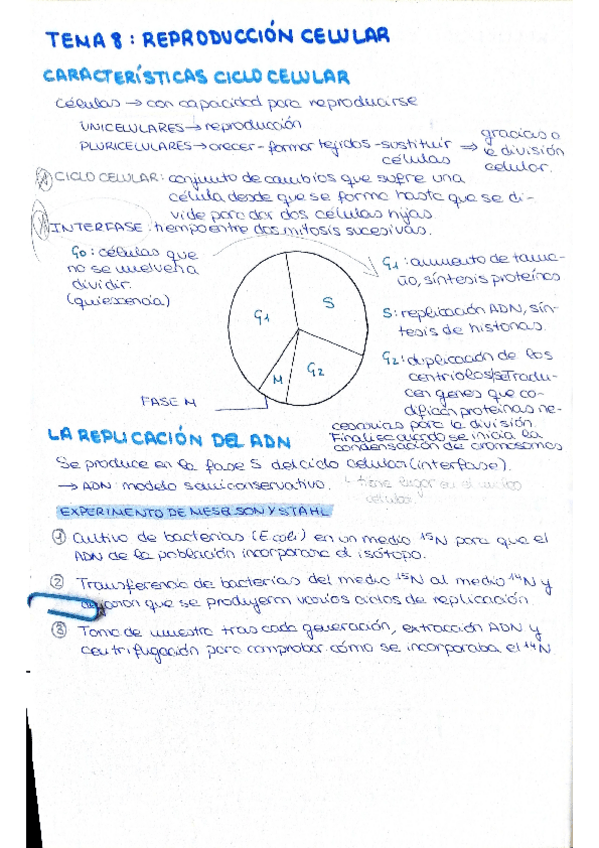 TEMA 8: REPRODUCCIÓN CELULAR
CARACTERÍSTICAS CICLO CELULAR
Células → con capacidad para reproducirse
UNICELULARES → reproducción
PLURICELULARES → crecer - formar tejidos - sustituir células ⇒ gracias a la división celular.
CICLO CELULAR: conjunto de cambios que sufre una
célula desde que se forma hasta que se di-
vide para dar dos células hijas.
INTERFASE: tiempo entre dos mitosis sucesivas.
G0: células que
no se vuelven a
dividir.
(quiescencia)
G1
S
M
G2
FASE M
G1: aumento de tama-
ño, síntesis proteínas
S: replicación ADN, sín-
tesis de histonas.
G2: duplicación de los
centriolos/se tradu-
cen genes que co-
difican proteínas ne-
cesarias para la división.
Finaliza cuando se inicia la
condensación de cromosomas
LA REPLICACIÓN DEL ADN
Se produce en la fase S del ciclo celular (interfase).
→ ADN: modelo semiconservativo.
tiene lugar en el núcleo
celular.
EXPERIMENTO DE MESELSON Y STAHL
① Cultivo de bacterias (E.coli) en un medio 15N para que el
ADN de la población incorporara el isótopo.
② Transferencia de bacterias del medio 15N al medio 14N y
dejaron que se produjeran varios ciclos de replicación
③ Toma de muestra tras cada generación, extracción ADN y
centrifugación para comprobar cómo se incorporaba el 14N